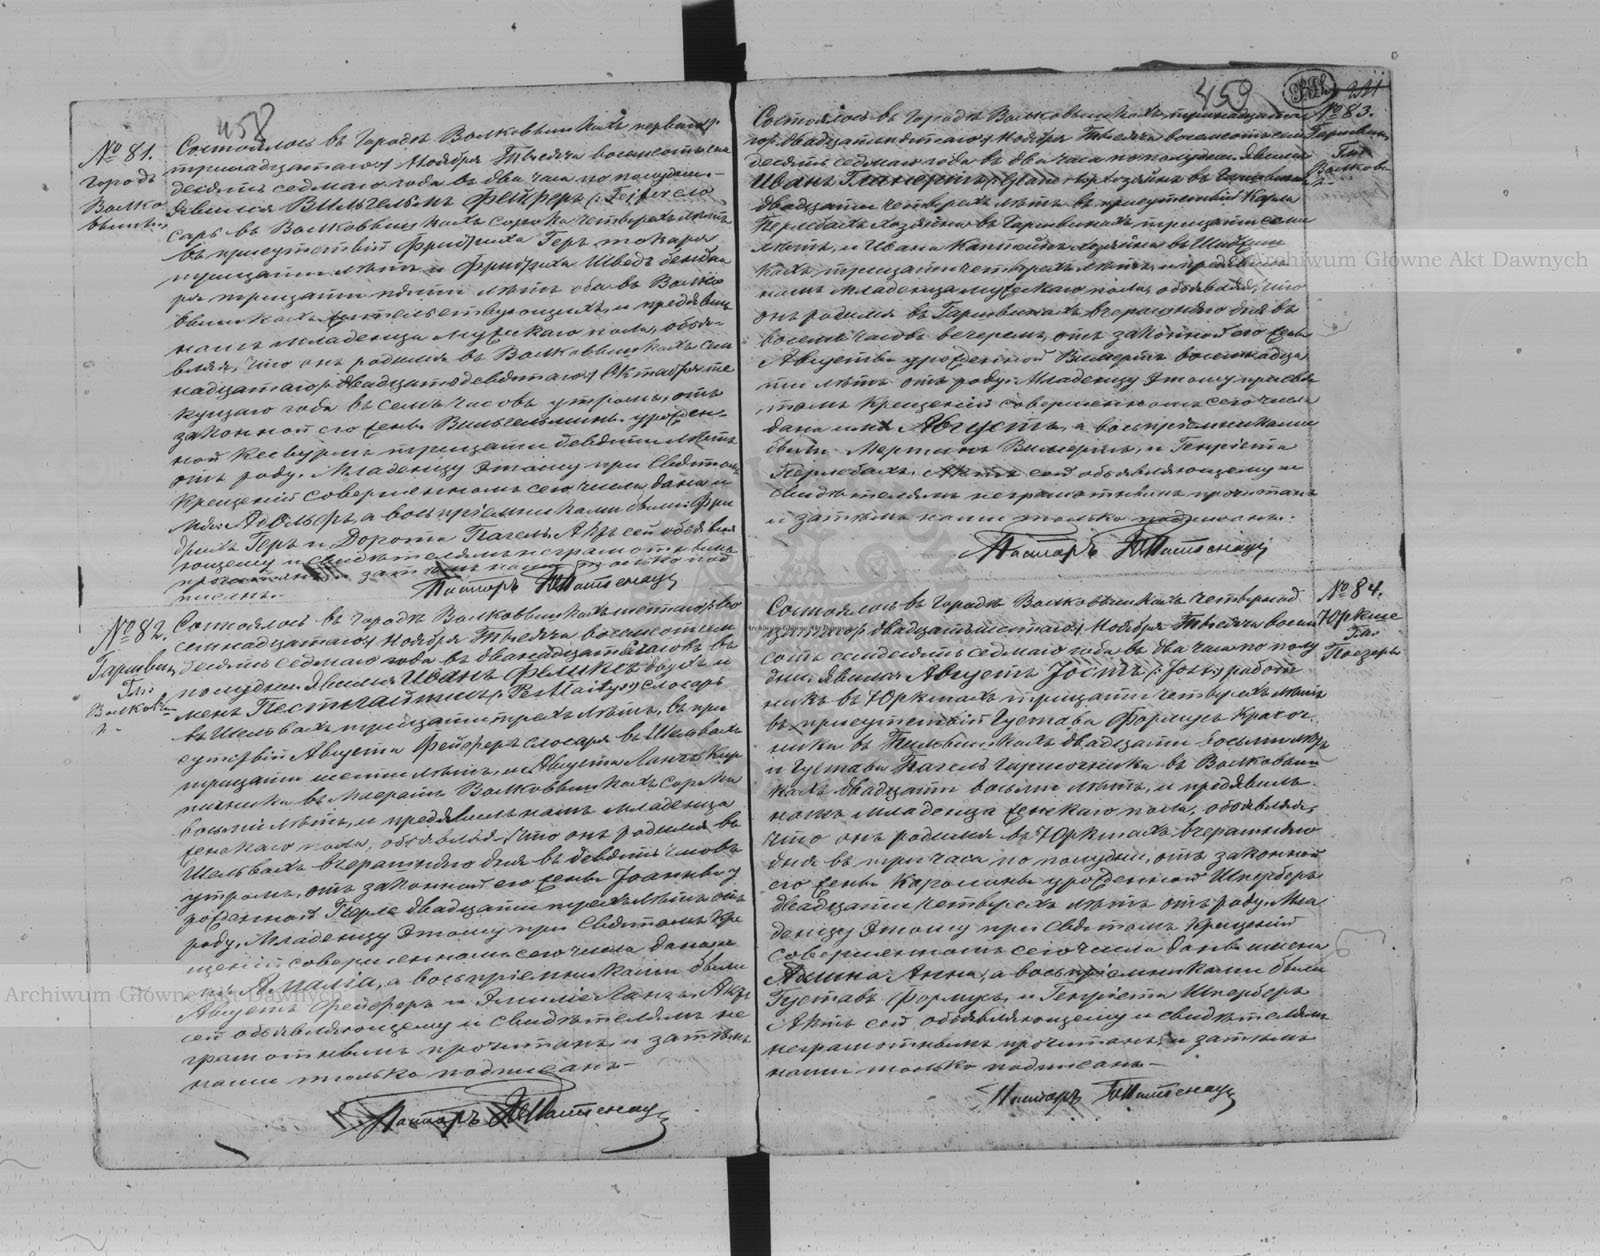 458
№ 81.
городъ
Волко
вышки
Состоялось въ городѣ Волковышкахъ перваго/
тринадцатаго/ Ноября Тысяча восемьсотъ сем
десятъ седмаго года въ два часа по полудни.
Явился Вильгельмъ Фейферъ /: Feifer сло
саръ въ Волковышкахъ сорока четырехъ лѣтъ
въ присутствіи Фридриха Геръ токаря
тридцати лѣтъ и Фридриха Шведъ бондаря
ря тридцати пяти лѣтъ оба въ Волко
вышкахъ жительствующихъ, и предъявилъ
намъ младенца мужскаго пола, объя-
вляя, что онъ родился въ Волковышкахъ сем
надцатаго/двадцать девятаго/ Октября те
кущаго года въ семь часовъ утромъ, отъ
законной его жены Вильгельмины урожден-
ной тридцати девяти лѣтъ
отъ роду. Младенцу этому при Святомъ
крещеніи совершенномъ сего числа дано и
мя Адольфъ, а воспріемниками были Фри
дрихъ Геръ и Дорота Пагель. Актъ сей объявля
ющему и свидѣтелямъ неграмотнымъ
прочитанъ и затѣмъ нами только под
писанъ.-
Пасторъ
№ 82.
Волковы
Состоялось въ городѣ Волковышкахъ шестаго/во
семнадцатаго/ Ноября Тысяча восемьсотъ сем
десятъ седмаго года въ двѣнадцать часовъ въ
полудни. Явился Иванъ Феликсъ двухъ и
менъ слосаръ
въ Шельвахъ тридцати трехъ лѣтъ, въ при
сутствіи Августа Фейферъ слосаря въ Шельвахъ
тридцати шести лѣтъ, и Августа Лангъ
въ Волковышкахъ сорока
восьми лѣтъ, и предъявилъ намъ младенца
женскаго пола, объявляя, что онъ родился въ
Шельвахъ вчерашняго дня въ девять часовъ
утромъ, отъ законной его жены Іоанны у
рожденной Перле двадцати трехъ лѣтъ отъ
роду. Младенцу этому при Святомъ кре
щеніи совершенномъ сего числа дано и
мя Амалія, а воспріемниками были
Августъ Фейферъ и Эмилія Лангъ. Актъ
сей объявляющему и свидѣтелямъ не
грамотнымъ прочитанъ и затѣмъ
нами только подписанъ.-
Пасторъ
459
221
№ 83.
Гмн.
Волков.
Состоялось въ городѣ Волковышкахъ тринадцатаго
двадцать пятаго/ Ноября Тысяча восемьсотъ сем
десятъ седмаго года въ два часа по полудни. Явился
Иванъ хозяинъ въ
двадцати четырехъ лѣтъ въ присутствіи Карла
Перлбахъ хозяина въ тридцати семи
лѣтъ, и Ивана хозяина въ
кахъ тридцати четырехъ лѣтъ, и предъявилъ
намъ младенца мужскаго пола, объявляя, что
онъ родился въ вчерашняго дня въ
восемь часовъ вечеромъ, отъ законной его жены
Августы урожденной восемнадца
ти лѣтъ отъ роду. Младенцу этому при свя
томъ крещеніи совершенномъ сего числа
дано имя Августъ, а воспріемниками
были Мартинъ и Генріета
Перлбахъ. Актъ сей объявляющему и
свидѣтелямъ неграмотнымъ прочитанъ
и затѣмъ нами только подписанъ.-
Пасторъ
№ 84.
Юркше
Гмн.
Поезоръ
Состоялось въ городѣ Волковышкахъ четырнад
цатаго/двадцать шестаго/ Ноября Тысяча восем
сотъ семдесятъ седмаго года въ два часа по полу
дни, явился Августъ Іостъ /: Jost :/ работ
никъ въ Юркшахъ тридцати четырехъ лѣтъ
въ присутствіи Густава Формусъ
ника въ Пильвишкахъ двадцати восьми лѣтъ
и Густава Пагель въ Волковыш
кахъ двадцати восьми лѣтъ, и предъявилъ
намъ младенца женскаго пола, объявляя,
что онъ родился въ Юркшахъ вчерашняго
дня въ три часа по полудни, отъ законной
его жены Каролины урожденной Шперберъ
двадцати четырехъ лѣтъ отъ роду. Мла
денцу этому при Святомъ крещеніи
совершенномъ сего числа даны имена
Анна, а воспріемниками были
Густавъ Формусъ, и Генріета Шперберъ
Актъ сей объявляющему и свидѣтелямъ
неграмотнымъ прочитанъ и затѣмъ
нами только подписанъ.-
Пасторъ
Archiwum Główne Akt Dawnych
Archiwum Główne Akt Dawnych
Archiwum Główne Akt Dawnych